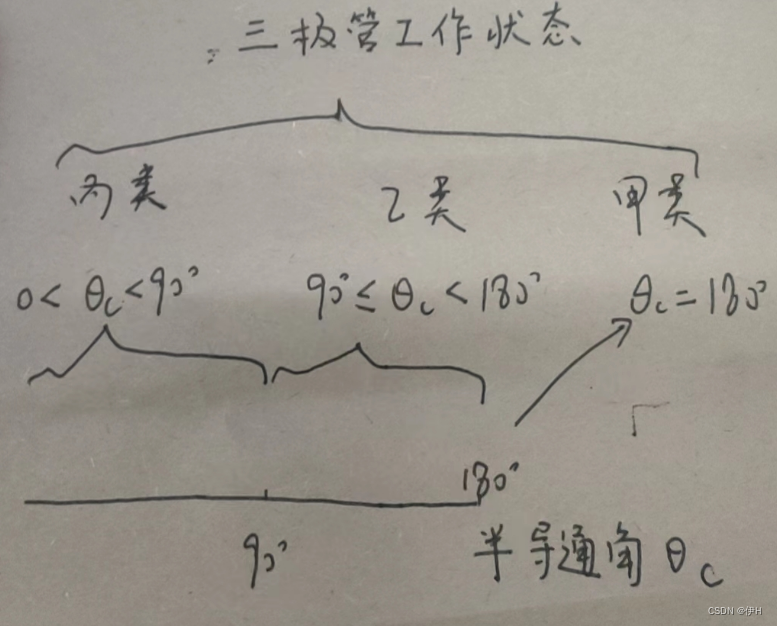 三极管工作状态
丙类 乙类 甲类
0<θc<90° 90°≤θc<180° θc=180°
180°
90° 半导通角θc
CSDN @伊H